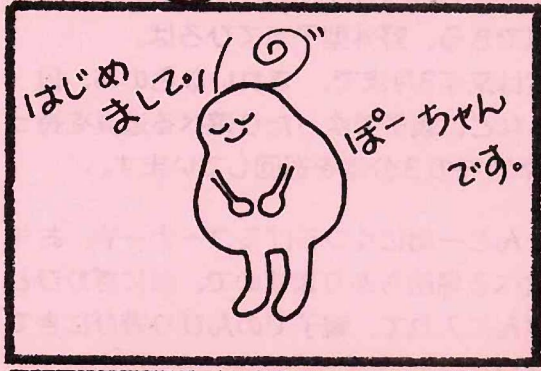 はじめ
まして!!
ぽーちゃん
です。